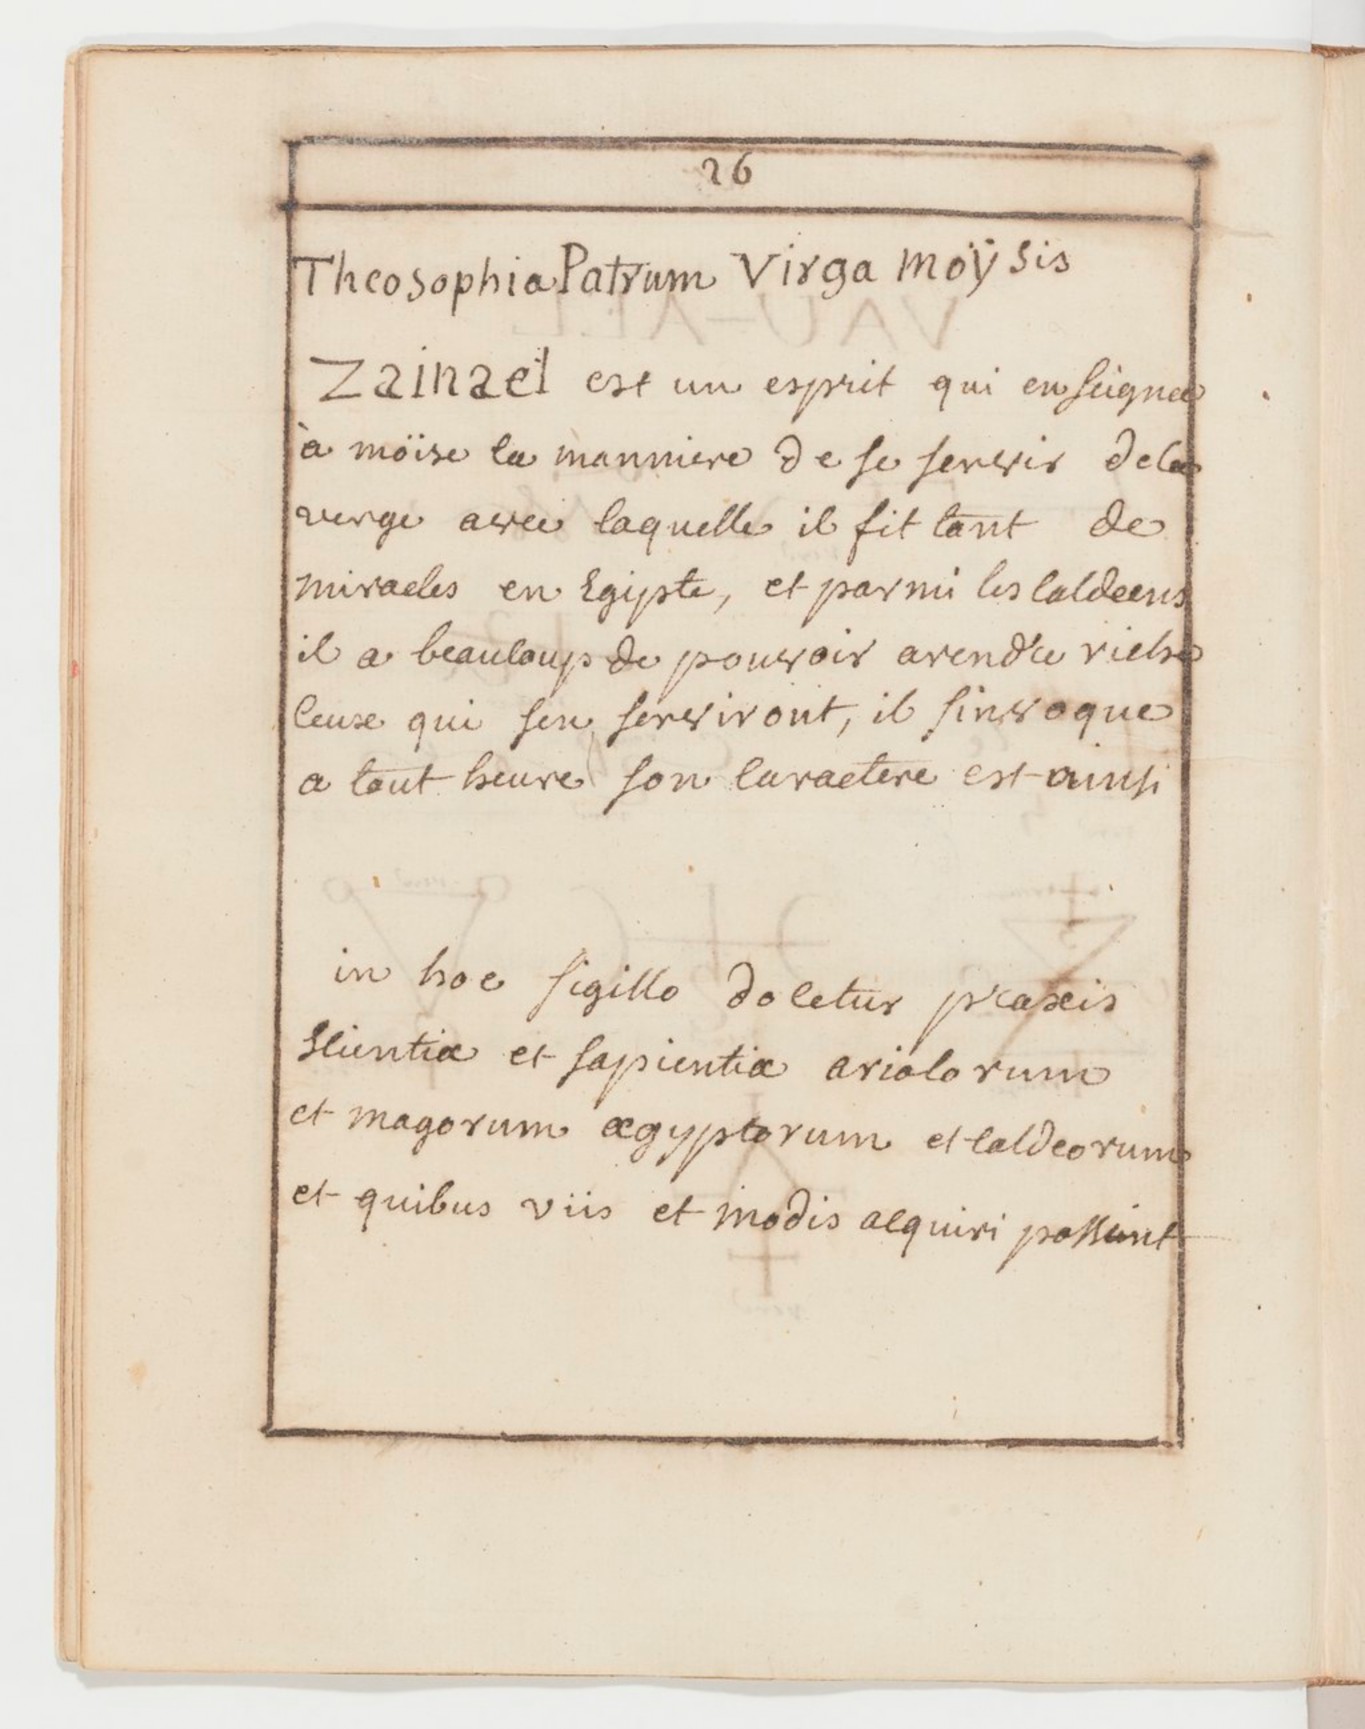 26
Theosophia Patrum Virga moÿsis
Zainael est un esprit qui enseigna
à moïse la manniere de se servir dela
verge avec laquelle il fit tant de
miracles en Egipte, et parmi les Caldeens
il a beaucoup de pouvoir arendre riche
ceuxe qui sen serviront, il sinvoque
a tout heure son caractere est ainsi
in hoc sigillo docetur praxis
scientiæ et sapientiæ ariolorum
et magorum ægyptorum et caldeorum
et quibus viis et modis acquiri possunt